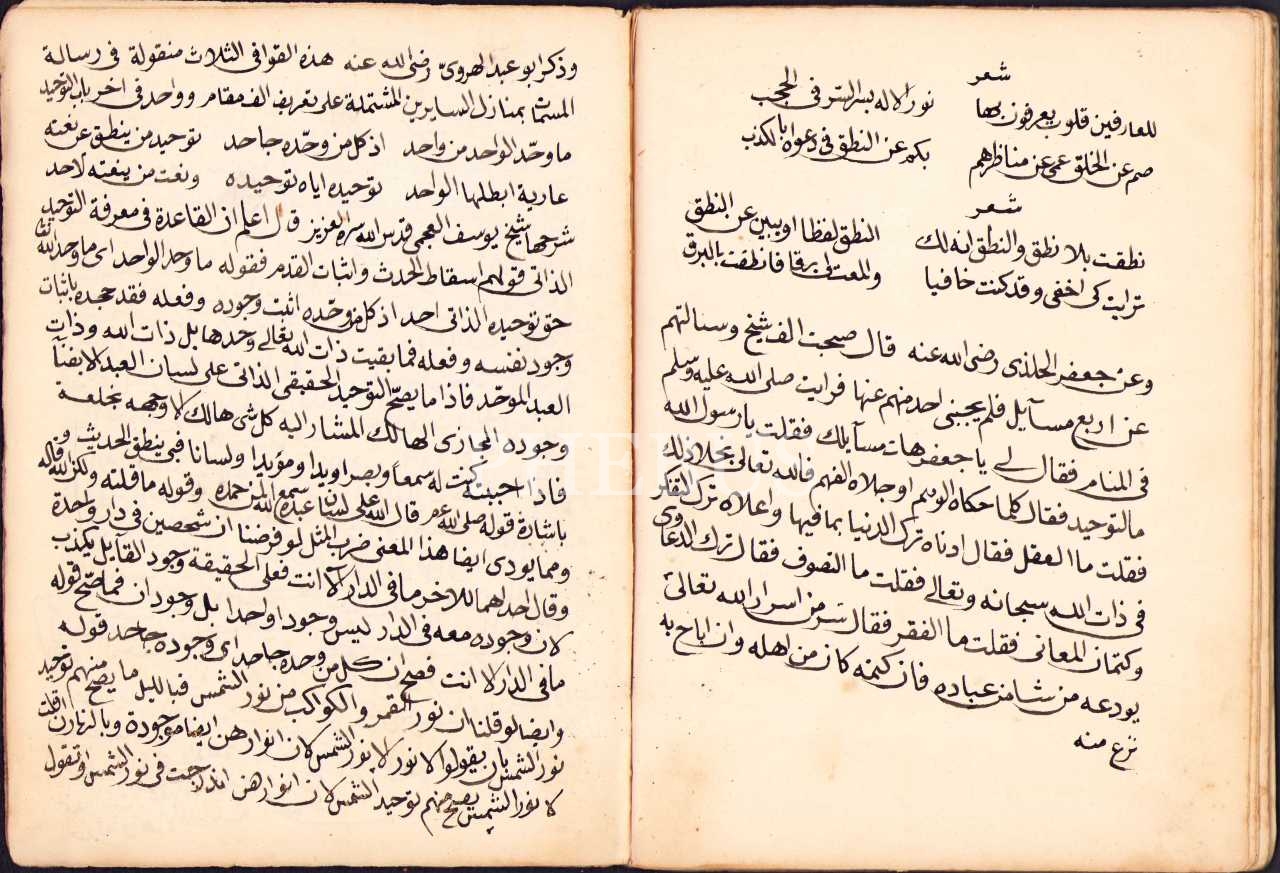 شعر
للعارفين قلوب يعرفون بها نور الاله بسر السر فى الحجب
صم عن الخلق عمى عن مناظرهم بكم عن النطق فى دعواه بالكذب
شعر
نطقت بلا نطق والنطق انه لك النطق لفظا او يبين عن النطق
ترايت كى اخفى وقد كنت خافيا والمعت لى برقا فانطقت بالبرق
وعن جعفر الخلذى رضى الله عنه قال صحبت الف شيخ وسالتهم
عن اربع مسآيل فلم يجيبنى احد منهم عنها فرايت صلى الله عليه وسلم
فى المنام فقال لى يا جعفر هات مسآيلك فقلت يا رسول الله
ما التوحيد فقال كلما حكاه الوهم او جلاه الفهم فالله تعالى بخلاف ذلك
فقلت ما العقل فقال ادناه ترك الدنيا بما فيها واعلاه ترك التفكر
فى ذات الله سبحانه وتعالى فقلت ما التصوف فقال ترك الدعاوى
وكتمان المعانى فقلت ما الفقر فقال سر من اسرار الله تعالى
يودعه من شا من عباده فان كتمه كان من اهله وان اباح به
نزع منه
وذكر ابو عبد الهروى رضى الله عنه هذه القوافى الثلاث منقولة فى رسالة
المسماة بمنازل السايرين المشتملة على تعريف الف مقام وواحد فى اخر باب التوحيد
ما وحد الواحد من واحد اذ كل من وحده جاحد توحيد من ينطق عن نعته
عارية ابطلها الواحد توحيده اياه توحيده ونعت من ينعته لاحد
شرحها شيخ يوسف العجمى قدس الله سره العزيز قال اعلم ان القاعدة فى معرفة التوحيد
الذاتى قولهم اسقاط الحدث واثبات القدم فقوله ما وحد الواحد اى ما وحد الله
حق توحيده الذاتى احد اذ كل من وحده اثبت وجوده وفعله فقد جحده باثبات
وجود نفسه وفعله فما بقيت ذات الله تعالى وحدها بل ذات الله وذات
العبد الموحد فاذا ما يصح التوحيد الحقيقى الذاتى على لسان العبد الا بفنآ
وجوده المجازى الهالك المشار اليه كل شى هالك الا وجهه بخلعة
فاذا احببته كنت له سمعا وبصرا ويدا ومؤيدا ولسانا فبى ينطق الحديث
باشارة قوله صلى الله قال الله على لسان عبده سمع الله لمن حمده وقوله ما قلته ولكن الله قاله
ومما يودى ايضا هذا المعنى ضرب المثل لو فرضنا ان شخصين فى دار واحدة
وقال احداهما للاخر ما فى الدار الا انت فعلى الحقيقة وجود القآيل يكذب
لان وجوده معه فى الدار ليس وجودا واحدا بل وجودان فما صح قوله
ما فى الدار الا انت فصح ان كل من وحده جاحد اى وجوده جاحد قوله
وايضا لو قلنا ان نور القمر والكواكب من نور الشمس فبالليل ما يصح منهم توحيد
نور الشمس بان يقولوا لا نور الا نور الشمس لان انوارهن ايضا موجودة وبالنهار ان قلت
لا نور الا نور الشمس يصح منهم توحيد الشمس لان انوارهن اندرجت فى نور الشمس او تقول